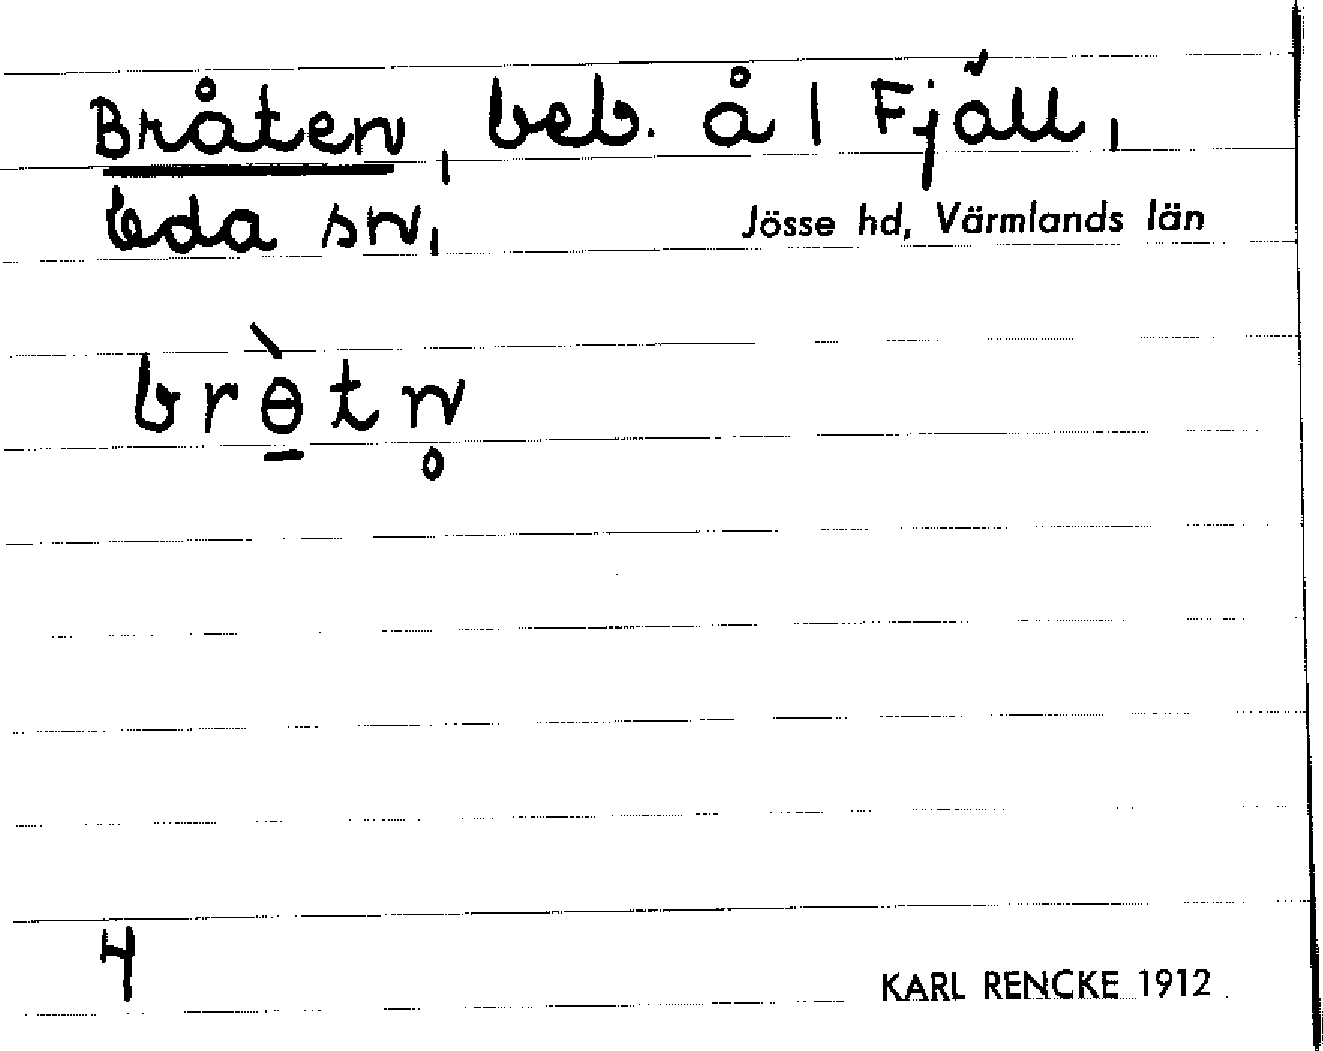 Bråten, beb. å 1 Fjäll,
Eda sn,
Jösse hd, Värmlands län
brɵ̱̀tn̥
4
KARL RENCKE 1912